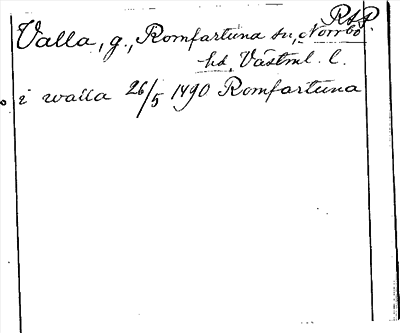 RAP.
Valla, g., Romfartuna sn, Norrbo
hd, Västml. l.
i walla 26/5 1490 Romfartuna